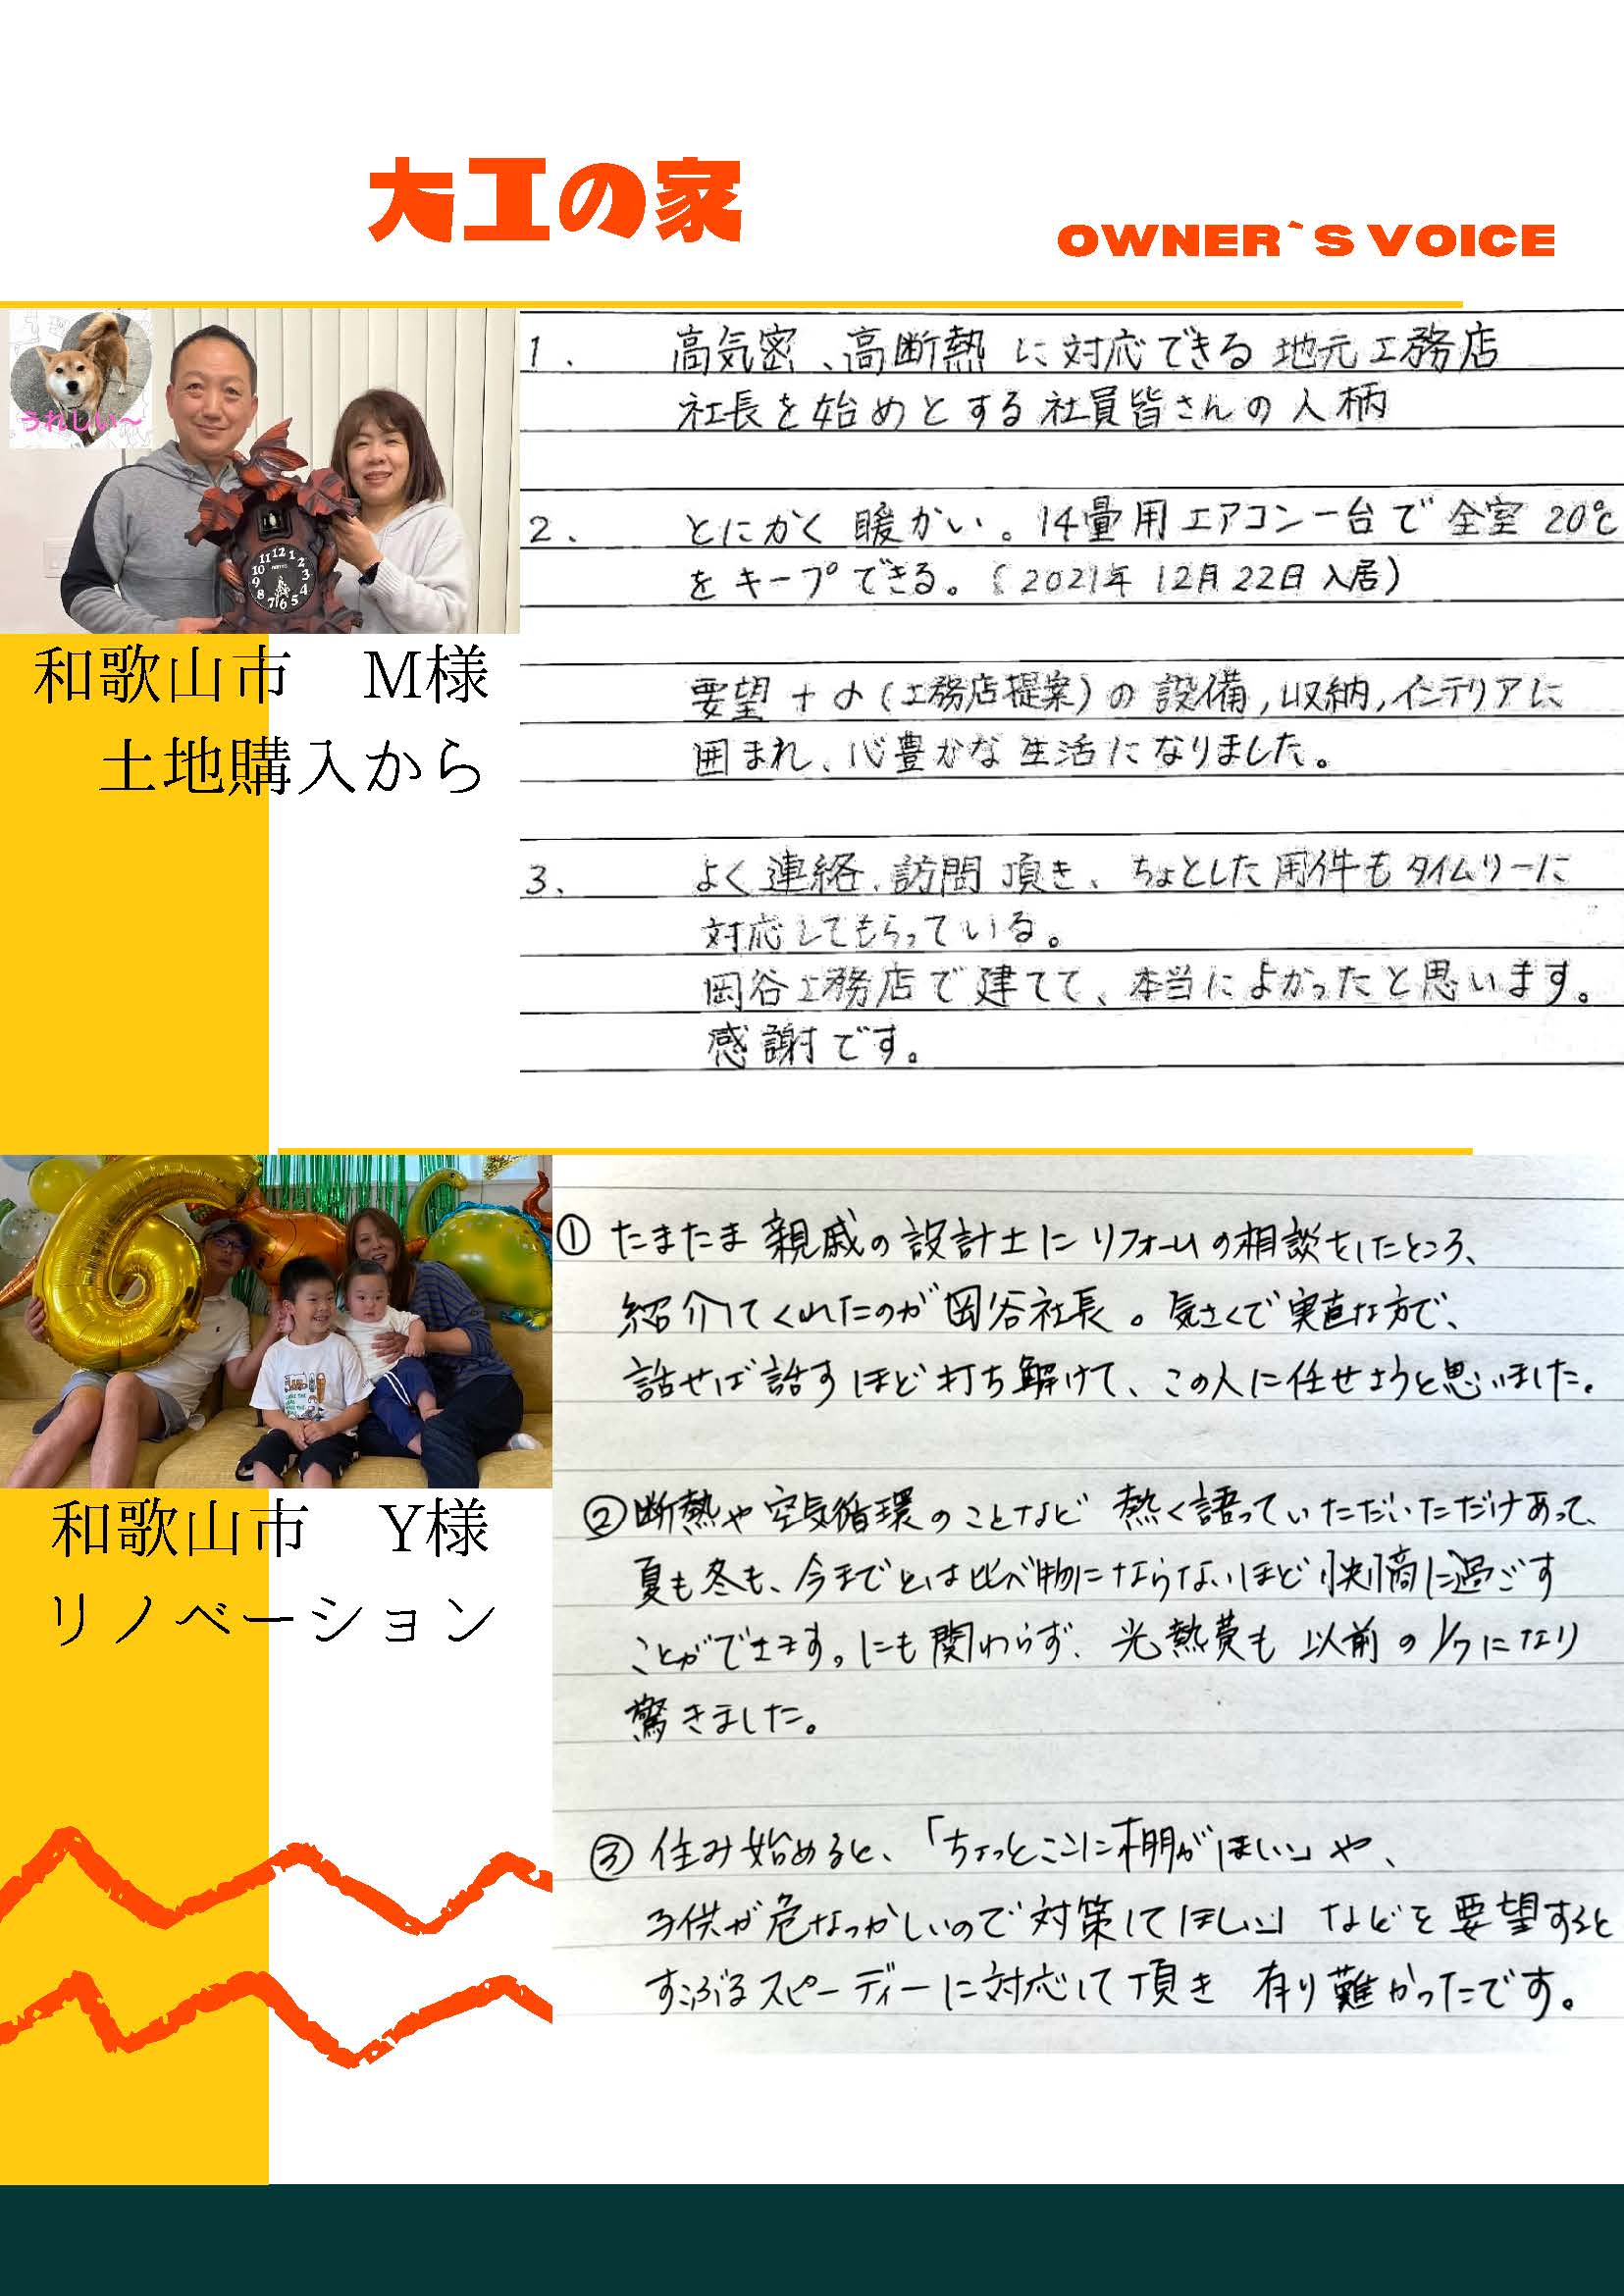 大工の家
OWNER`S VOICE
うれしい〜
和歌山市　M様
土地購入から
1. 高気密、高断熱に対応できる地元工務店
社長を始めとする社員皆さんの人柄
2. とにかく暖かい。14畳用エアコン一台で全室20℃
をキープできる。(2021年12月22日入居)
要望+α(工務店提案)の設備,収納,インテリアに
囲まれ、心豊かな生活になりました。
3. よく連絡、訪問頂き、ちょとした用件もタイムリーに
対応してもらっている。
岡谷工務店で建てて、本当によかったと思います。
感謝です。
和歌山市　Y様
リノベーション
① たまたま親戚の設計士にリフォームの相談をしたところ、
紹介してくれたのが岡谷社長。気さくで実直な方で、
話せば話すほど打ち解けて、この人に任せようと思いました。
②断熱や空気循環のことなど熱く語っていただいただけあって、
夏も冬も、今までとは比べ物にならないほど快適に過ごす
ことができます。にも関わらず、光熱費も以前の1/7になり
驚きました。
③ 住み始めると、「ちょっとここに棚がほしい」や、
子供が危なっかしいので対策してほしい」などを要望すると
すこぶるスピーディーに対応して頂き 有り難かったです。